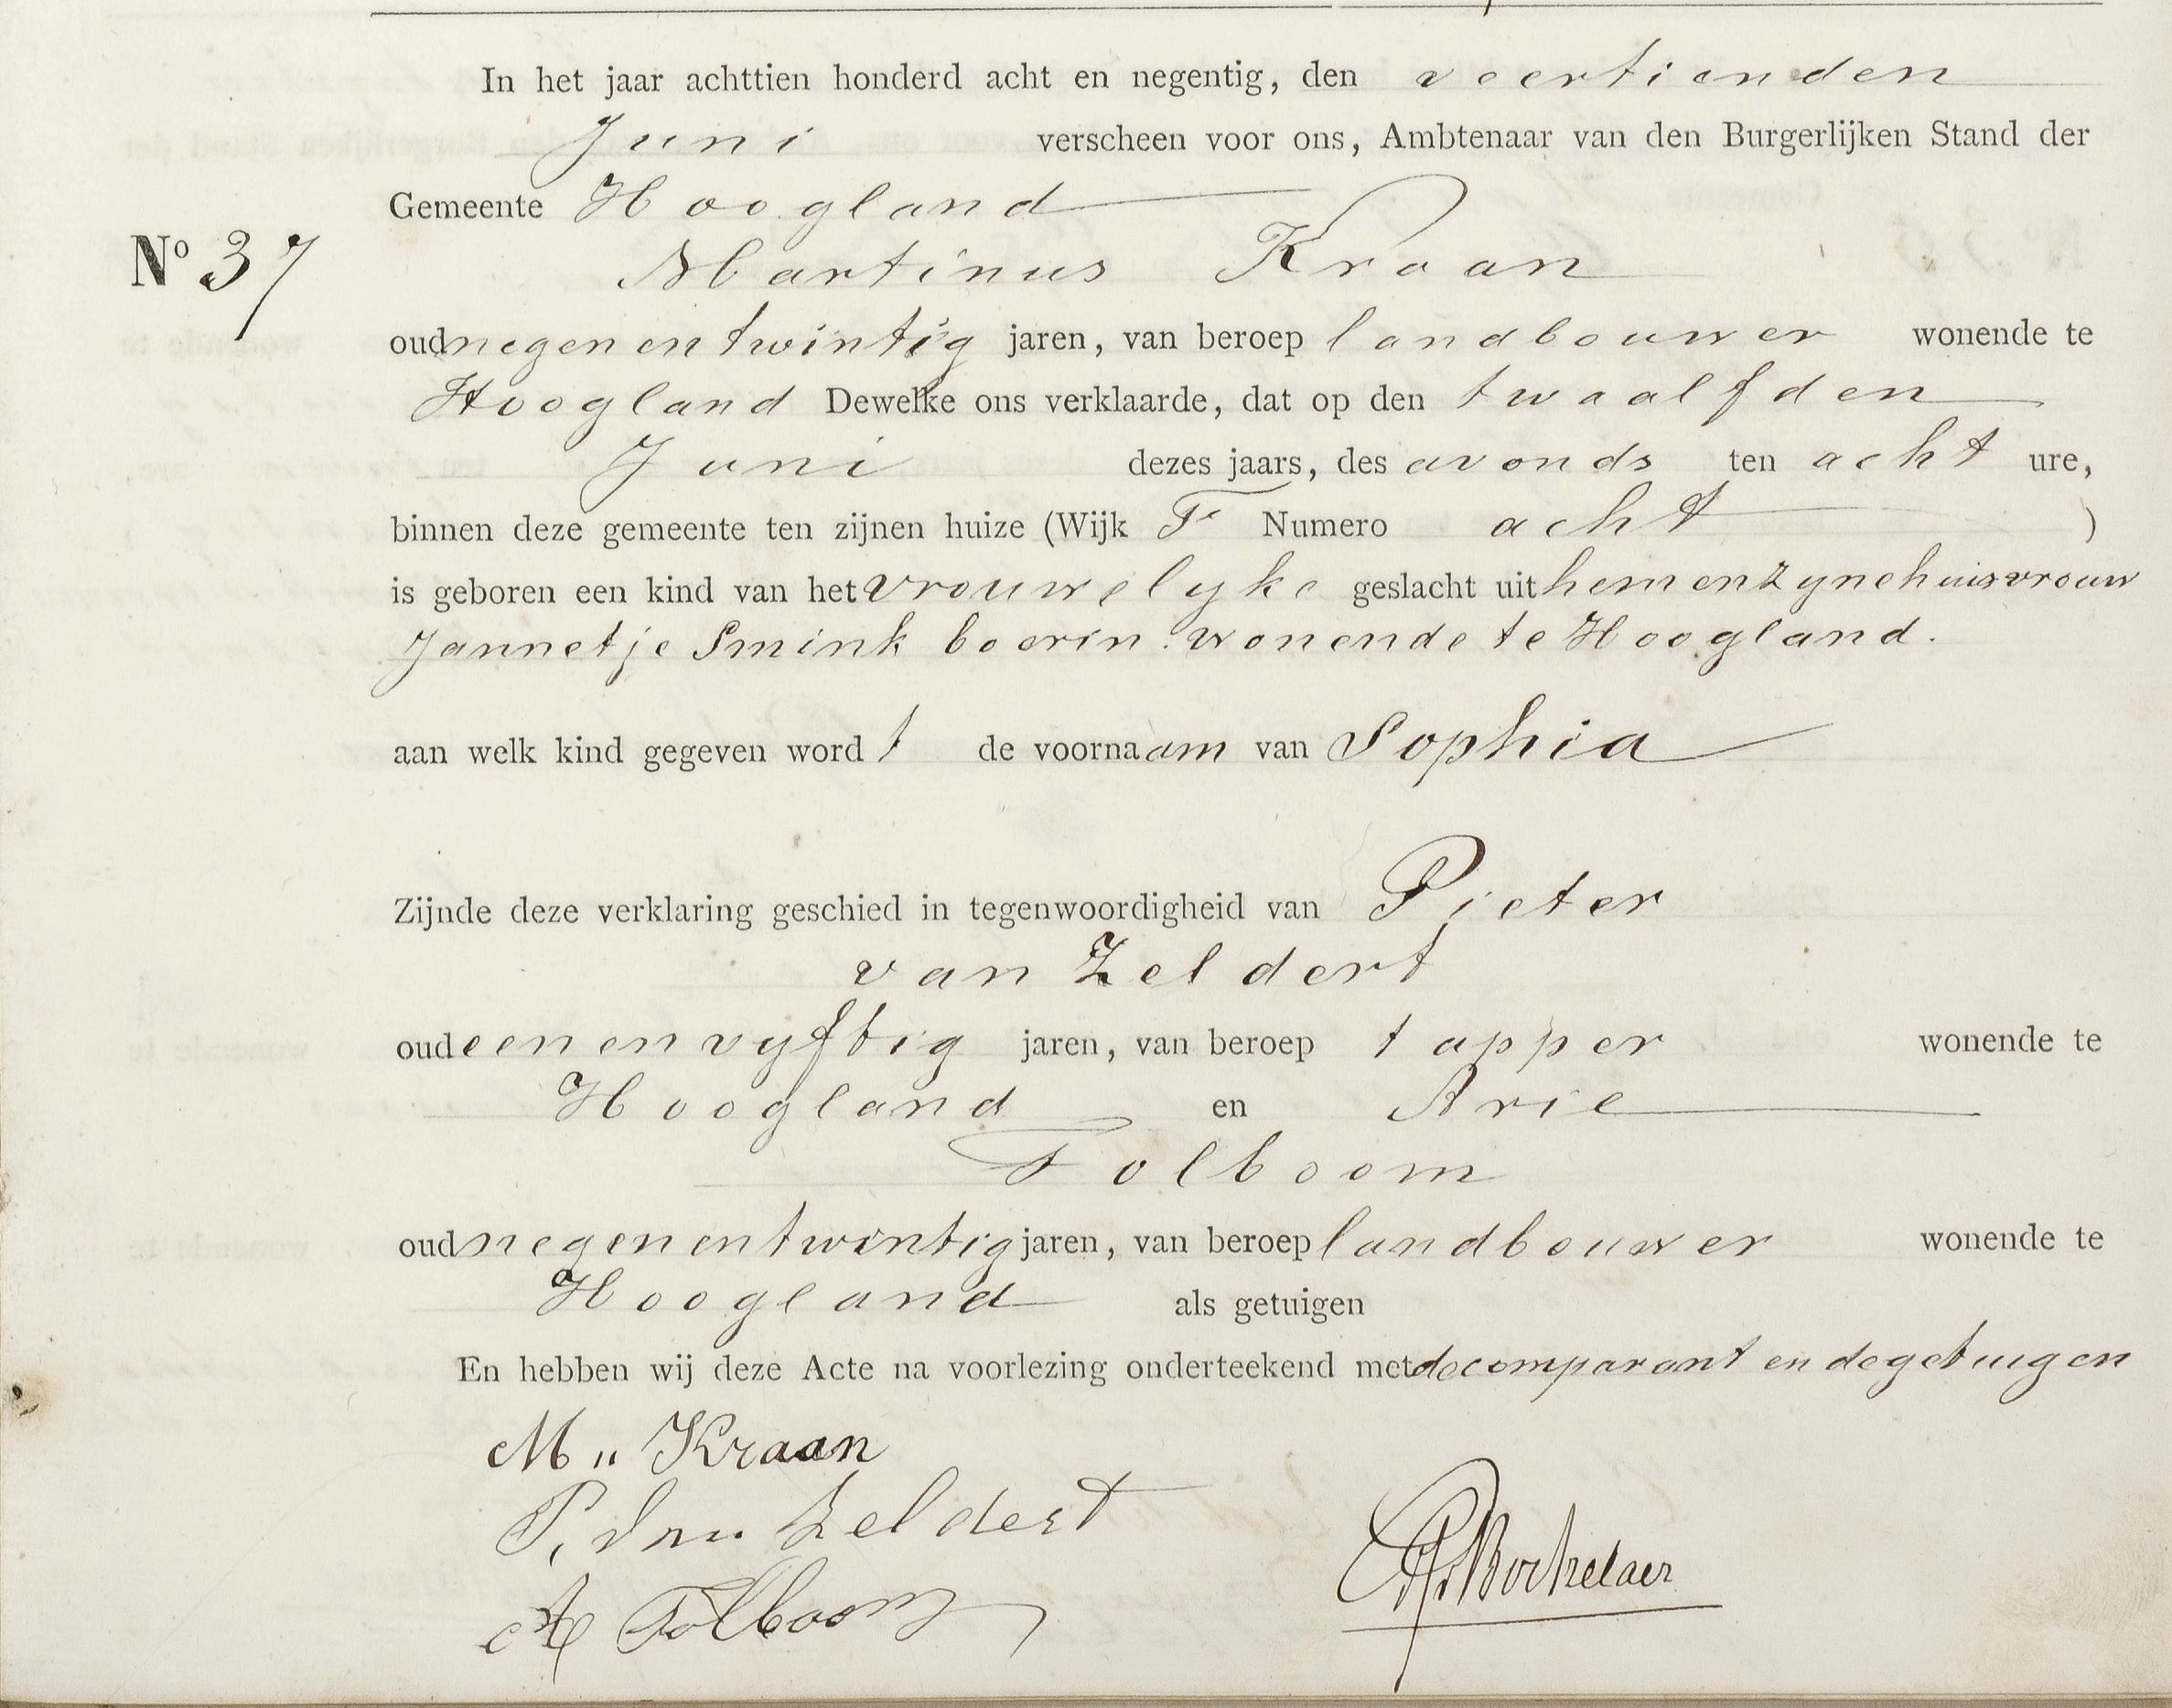 In het jaar achttien honderd acht en negentig, den veertienden
Juni verscheen voor ons, Ambtenaar van den Burgerlijken Stand der
Gemeente Hoogland
No 37
Martinus Kraan
oud negen en twintig jaren, van beroep landbouwer wonende te
Hoogland Dewelke ons verklaarde, dat op den twaalfden
Juni dezes jaars, des avonds ten acht ure,
binnen deze gemeente ten zijnen huize (Wijk F Numero acht )
is geboren een kind van het vrouwelyke geslacht uit hem en zyne huisvrouw
Jannetje Smink boerin wonende te Hoogland.
aan welk kind gegeven word t de voornaam van Sophia
Zijnde deze verklaring geschied in tegenwoordigheid van Pieter
van Zeldert
oud een en vyftig jaren, van beroep tapper wonende te
Hoogland en Arie
Tolboom
oud negen en twintig jaren, van beroep landbouwer wonende te
Hoogland als getuigen
En hebben wij deze Acte na voorlezing onderteekend met de comparant en de getuigen
M" Kraan
P. van Zeldert
A Tolboom